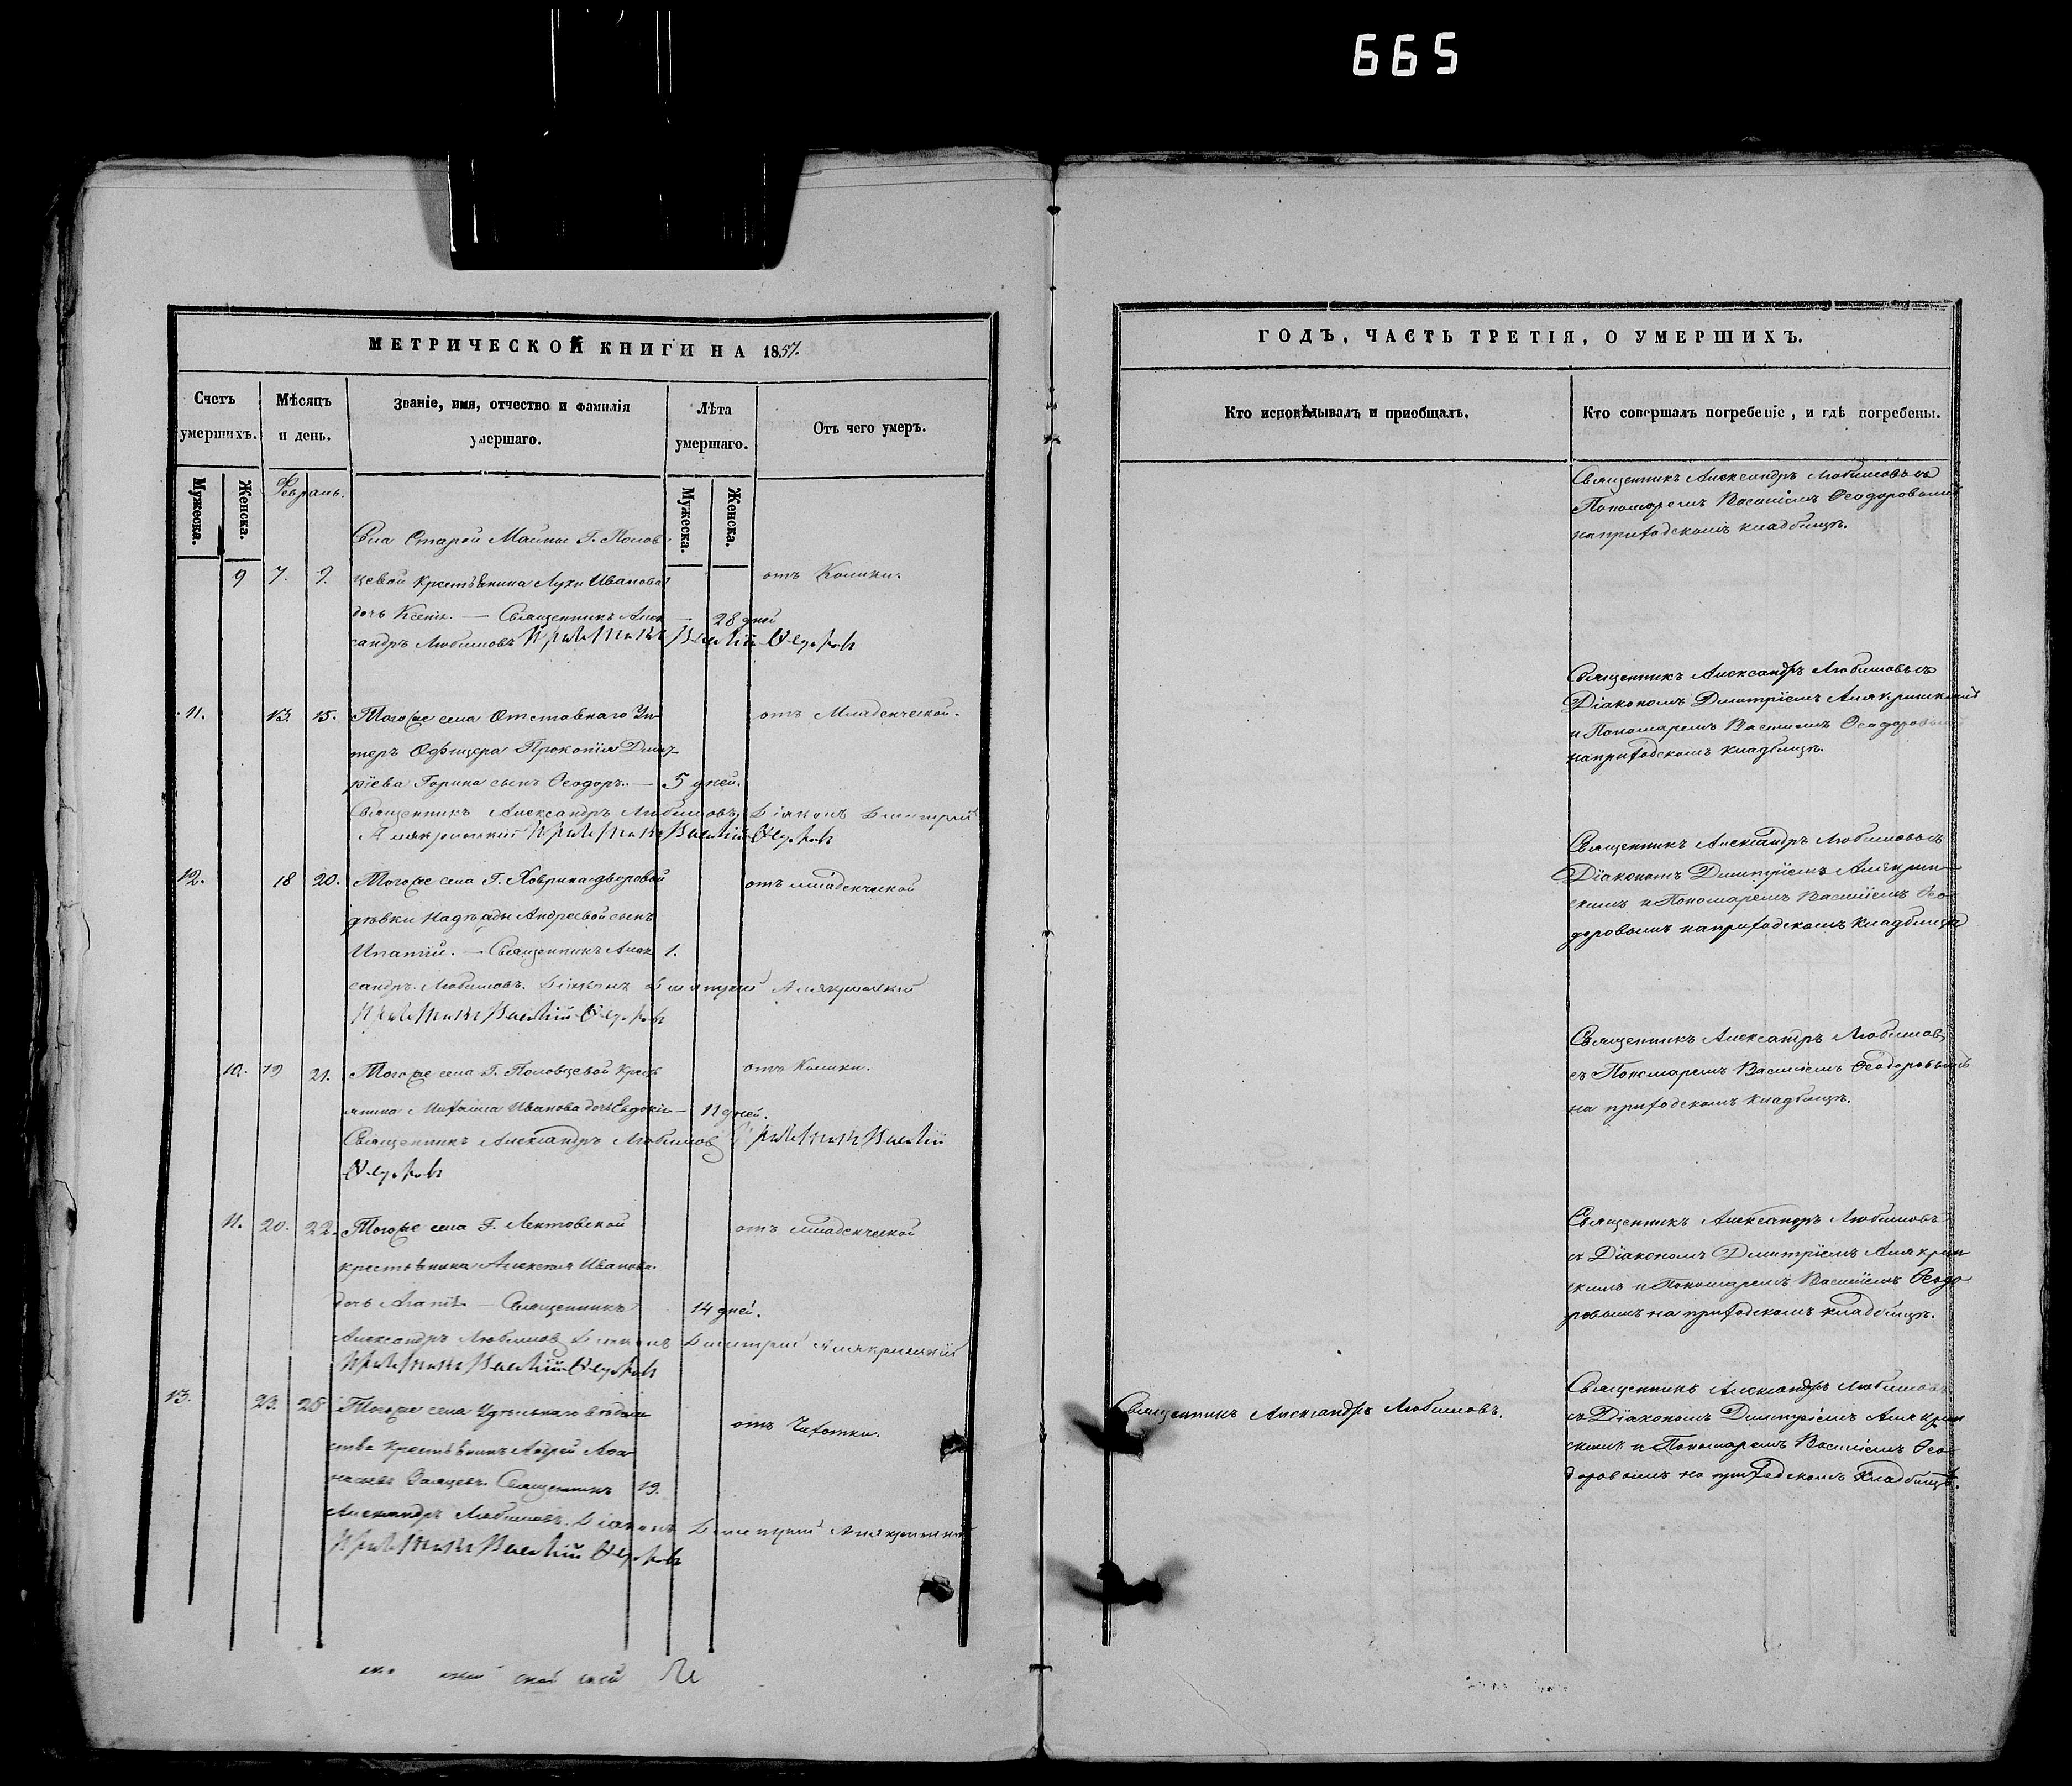 665
МЕТРИЧЕСКОЙ КНИГИ НА 1857.
Счетъ умершихъ.
Мѣсяцъ и день.
Званіе, имя, отчество и фамилія умершаго.
Лѣта умершаго.
Отъ чего умеръ.
Мужеска.
Женска.
Мужеска.
Женска.
Февраль.
Села Старой Майны Г. Полов
9 7. 9. цевой крестьянина Луки Иванова отъ Колики.
дочь Ксенія. — Священникъ Алек — 28 дней
сандръ Любимовъ
11. 13. 15. Тогоже села Отставнаго Ун отъ Младенческой.
теръ Офицера Прокопія Димит
ріева Горина сынъ Ѳеодоръ. — 5 дней.
Священникъ Александръ Любимовъ, Діаконъ Димитрій
12. 18 20. Тогоже села Г. Ховрина дворовой отъ младенческой
дѣвки Надежды Андреевой сынъ
Ипатій. — Священникъ Алек 1.
сандръ Любимовъ. Діаконъ Димитрій
10. 19 21. Тогоже села Г. Половцевой Крест отъ Колики.
янина Михаила Иванова дочь Евдокія — 11 дней.
Священникъ Александръ Любимовъ
11. 20. 22. Тогоже села Г. Лентовской отъ младенческой
крестьянина Алексея Иванова
дочь Агапія — Священникъ 14 дней.
Александръ Любимовъ Діаконъ Димитрій
13. 23. 25 Тогоже села Удѣльнаго вѣдом отъ Чахотки.
ства крестьянинъ Андрей Аѳа
насьевъ Зайцевъ. Священникъ 19.
Александръ Любимовъ. Діаконъ Димитрій
ГОДЪ, ЧАСТЬ ТРЕТІЯ, О УМЕРШИХЪ.
Кто исповѣдывалъ и пріобщалъ.
Кто совершалъ погребеніе, и гдѣ погребены.
Священникъ Александръ Любимовъ съ
Пономаремъ Василіемъ Ѳеодоровымъ
на приходскомъ кладбищѣ.
Священникъ Александръ Любимовъ съ
Діакономъ Димитріемъ
и Пономаремъ Василіемъ Ѳеодоровымъ
на приходскомъ кладбищѣ.
Священникъ Александръ Любимовъ съ
Діакономъ Димитріемъ Алякрин
скимъ и Пономаремъ Василіемъ Ѳео
доровымъ на приходскомъ кладбищѣ
Священникъ Александръ Любимовъ
съ Пономаремъ Василіемъ Ѳеодоровымъ
на приходскомъ кладбищѣ.
Священникъ Александръ Любимовъ
съ Діакономъ Димитріемъ Алякрин
скимъ и Пономаремъ Василіемъ Ѳеодо
ровымъ на приходскомъ кладбищѣ.
Священникъ Александръ Любимовъ.
Священникъ Александръ Любимовъ
съ Діакономъ Димитріемъ Алякрин
скимъ и Пономаремъ Василіемъ Ѳео
доровымъ на приходскомъ кладбищѣ.